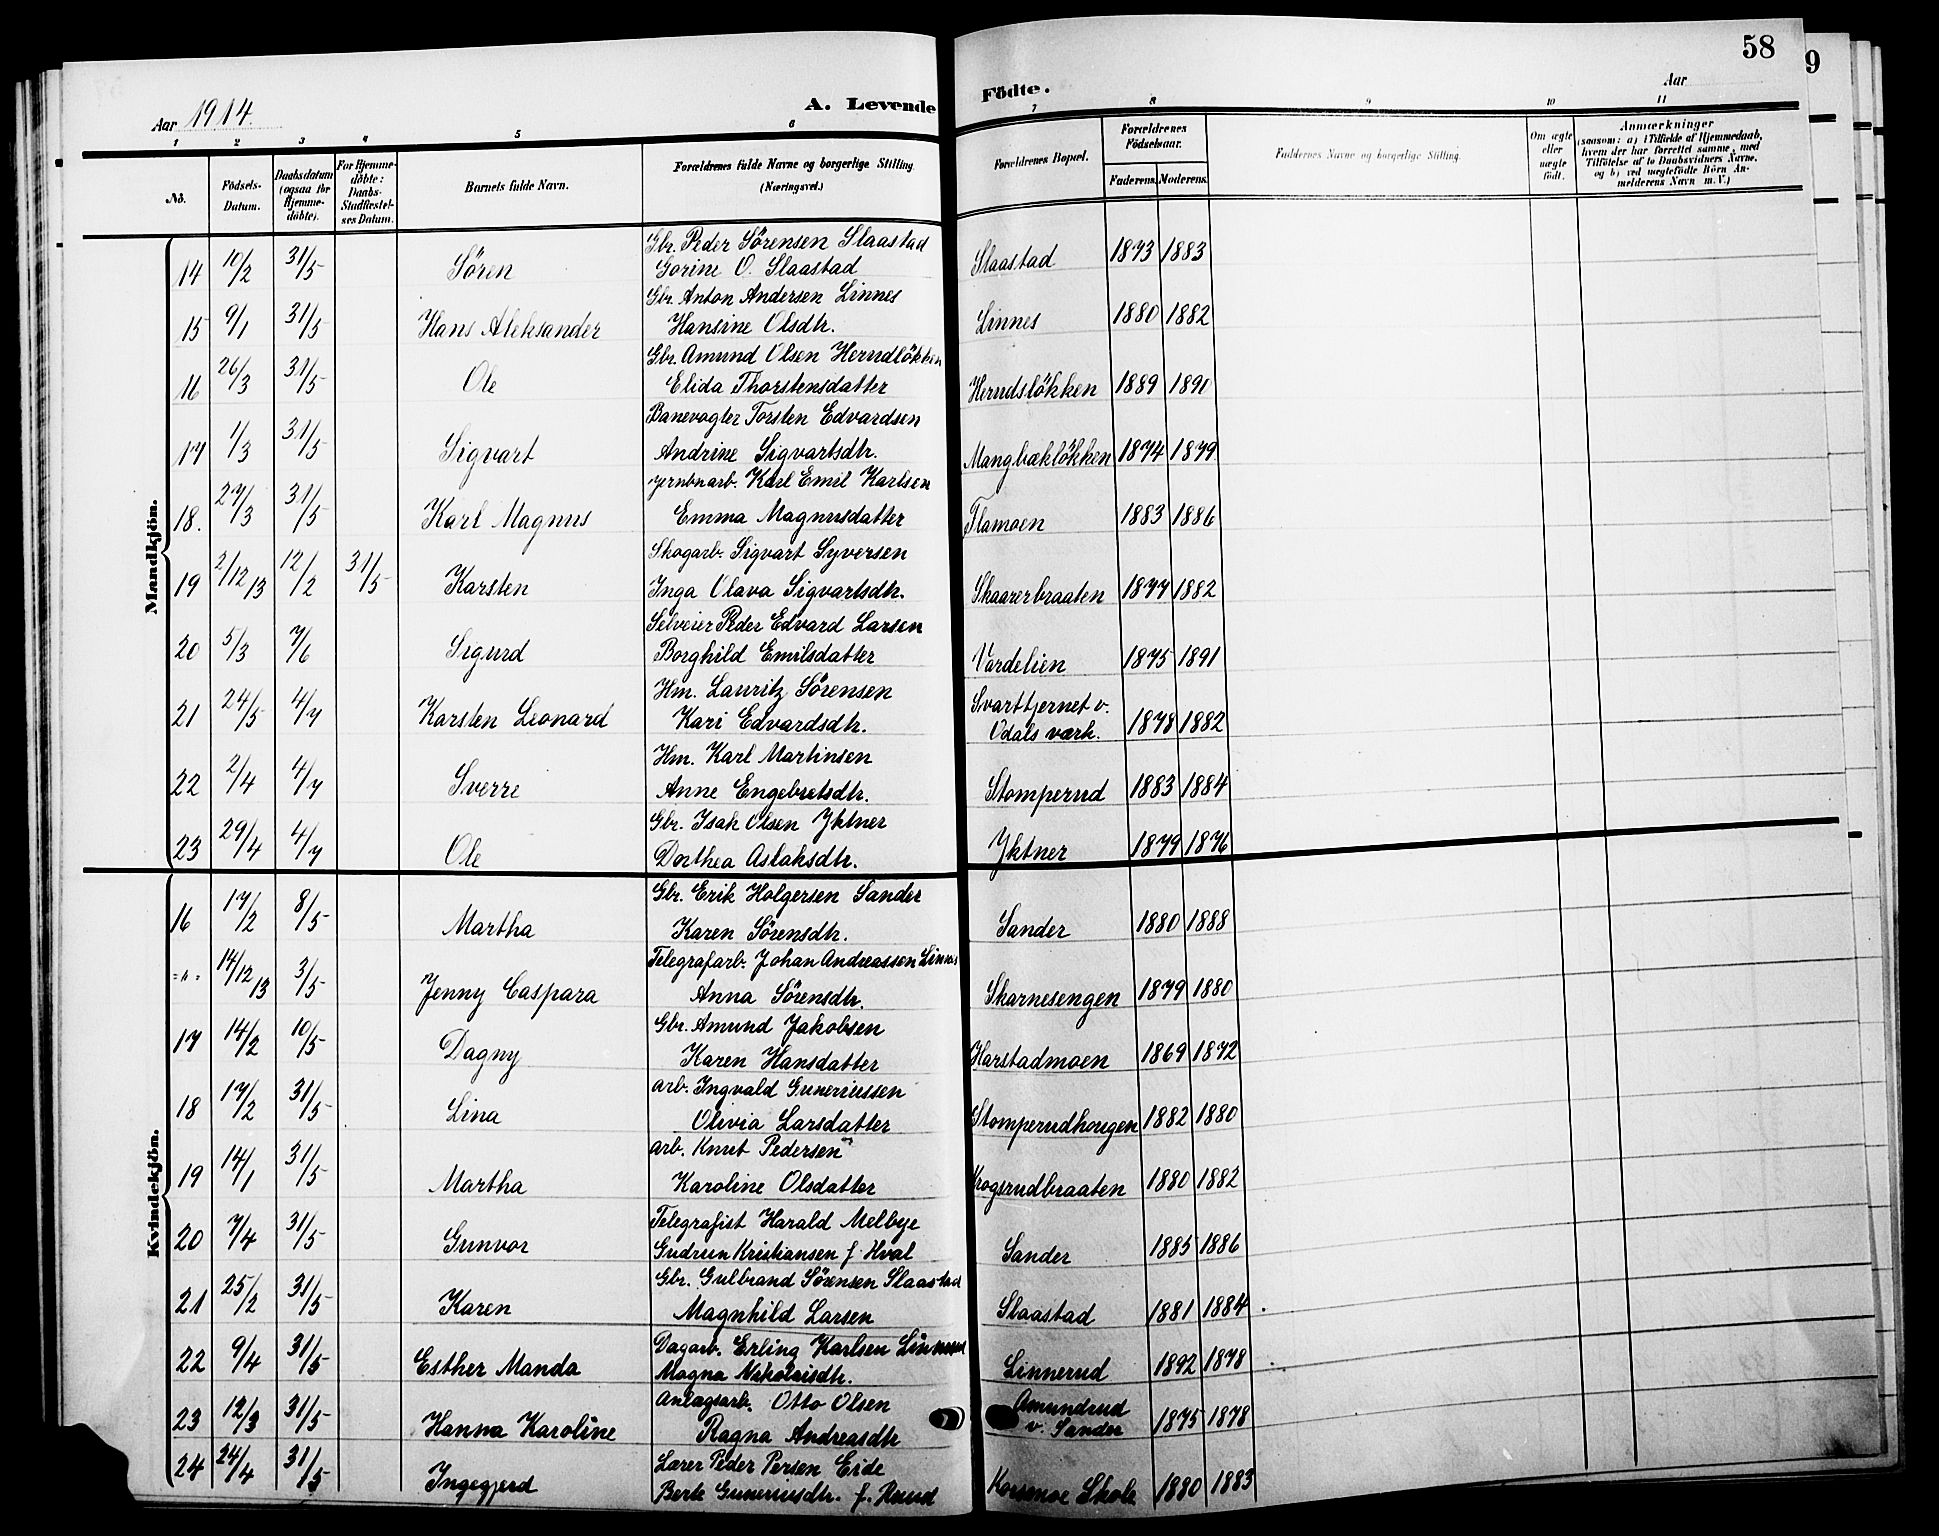 58
9
Aar 1914.
A. Levende
Födte.
Aar
1 2 3 4 5 6 7 8 9 10 11
No.
Födsels-
Datum.
Daabsdatum
(ogsaa for
Hjemme-
döbte).
For Hjemme-
döbte:
Daabs-
Stadfæstel-
ses Datum.
Barnets fulde Navn.
Forældrenes fulde Navne og borgerlige Stilling.
(Næringsvei.)
Forældrenes Bopæl.
Forældrenes
Födselsaar.
Faderens. Moderens.
Faddernes Navne og borgerlige Stilling.
Om ægte
eller
uægte
födt.
Anmærkninger
(saasom: a) i Tilfælde af Hjemmedaab,
hvem der har forrettet samme, med
Tilföielse af to Daabsvidners Navne,
og b) ved uægtefödte Börn An-
melderens Navn m. V.)
Mandkjön.
Gbr. Peder Sörensen Slaastad
14 10/2 31/5 Sören Gorine O. Slaastad Slaastad 1873 1883
Gbr. Anton Andersen Linnes
15 9/1 31/5 Hans Aleksander Hansine Olsdtr. Linnes 1880 1882
Gbr. Amund Olsen Herudlökken
16 26/3 31/5 Ole Elida Thorstensdatter Herudslökken 1889 1890
Banevogter Torsten Edvardsen
17 1/3 31/5 Sigvart Andrine Sigvartsdtr. Mangbæklökken 1874 1879
jernbnarb. Karl Emil Karlsen
18. 27/3 31/5 Karl Magnus Emma Magnusdatter Flamoen 1883 1886
Skogarb. Sigvart Syversen
19 2/12 13 12/2 31/5 Karsten Inga Olava Sigvartsdtr. Skaarerbraaten 1877 1882
Selveier Peder Edvard Larsen
20 5/3 7/6 Sigurd Borghild Emilsdatter Vardelien 1875 1891
Hm. Lauritz Sörensen Svarttjernet v.
21 24/5 4/7 Karsten Leonard Kari Edvardsdtr. Odals værk. 1878 1882
Hm. Karl Martinsen
22 2/4 4/7 Sverre Anne Engebretsdtr. Stomperud 1883 1884
Gbr. Isak Olsen Yktner
23 29/4 4/7 Ole Dorthea Aslaksdtr. Yktner 1879 1876
Kvindekjön.
Gbr. Erik Holgersen Sander
16 17/2 8/5 Martha Karen Sörensdtr. Sander 1880 1888
Telegrafarb. Johan Andreassen Linnes
="= 14/12 13 3/5 Jenny Caspara Anna Sörensdtr. Skarnesengen 1879 1880
Gbr. Amund Jakobsen
17 14/2 10/5 Dagny Karen Hansdatter Harstadmoen 1869 1872
arb. Ingvald Guneriussen
18 17/2 31/5 Lina Olivia Larsdatter Stomperudhougen 1882 1880
arb. Knut Pedersen
19 14/1 31/5 Martha Karoline Olsdatter Krogsrudbraaten 1880 1882
Telegrafist Harald Melbye
20 7/4 31/5 Gunvor Gudrun Kristiansen f. Hval Sander 1885 1886
Gbr. Gulbrand Sörensen Slaastad
21 25/2 31/5 Karen Magnhild Larsen Slaastad 1881 1884
Dagarb. Erling Karlsen Linnerud
22 9/4 31/5 Esther Manda Magna Nikolaisdtr. Linnerud 1892 1878
Anlægsarb. Otto Olsen Amundrud
23 12/3 31/5 Hanna Karoline Ragna Andreasdtr v. Sander 1875 1878
Lærer Peder Persen Eide
24 24/4 31/5 Ingegjerd Berte Guneriusdtr. f. Ruud Korsmoe Skole 1880 1883